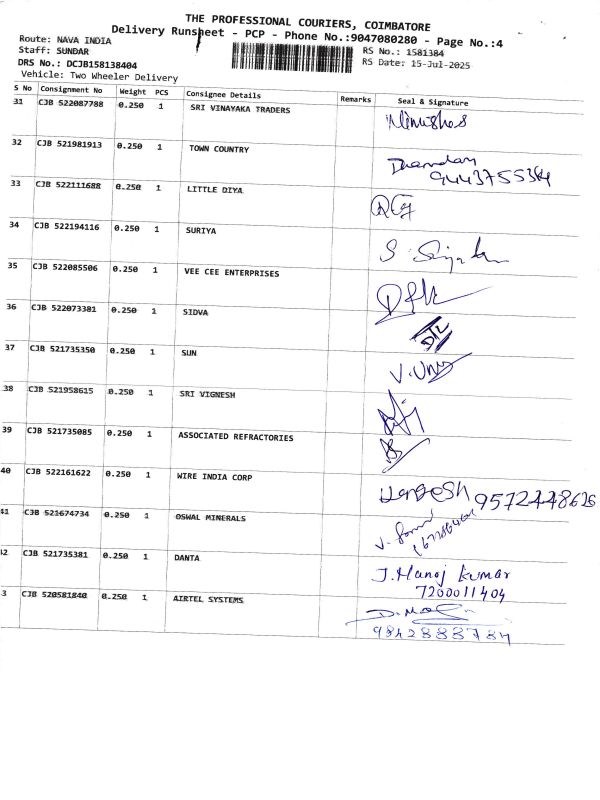 THE PROFESSIONAL COURIERS, COIMBATORE
Delivery Runsheet - PCP - Phone No.:9047080280 - Page No.:4
Route: NAVA INDIA
RS No.: 1581384
Staff: SUNDAR
RS Date: 15-Jul-2025
DRS No.: DCJB158138404
Vehicle: Two Wheeler Delivery
S No Consignment No Weight PCS Consignee Details Remarks Seal & Signature
31 CJB 522087788 0.250 1 SRI VINAYAKA TRADERS
32 CJB 521981913 0.250 1 TOWN COUNTRY
33 CJB 522111688 0.250 1 LITTLE DIYA
34 CJB 522194116 0.250 1 SURIYA
35 CJB 522085506 0.250 1 VEE CEE ENTERPRISES
36 CJB 522073381 0.250 1 SIDVA
37 CJB 521735350 0.250 1 SUN
38 CJB 521958615 0.250 1 SRI VIGNESH
39 CJB 521735085 0.250 1 ASSOCIATED REFRACTORIES
40 CJB 522161622 0.250 1 WIRE INDIA CORP
41 CJB 521674734 0.250 1 OSWAL MINERALS
42 CJB 521735381 0.250 1 DANTA
J. Manoj kumar
7200011404
3 CJB 520581840 0.250 1 AIRTEL SYSTEMS